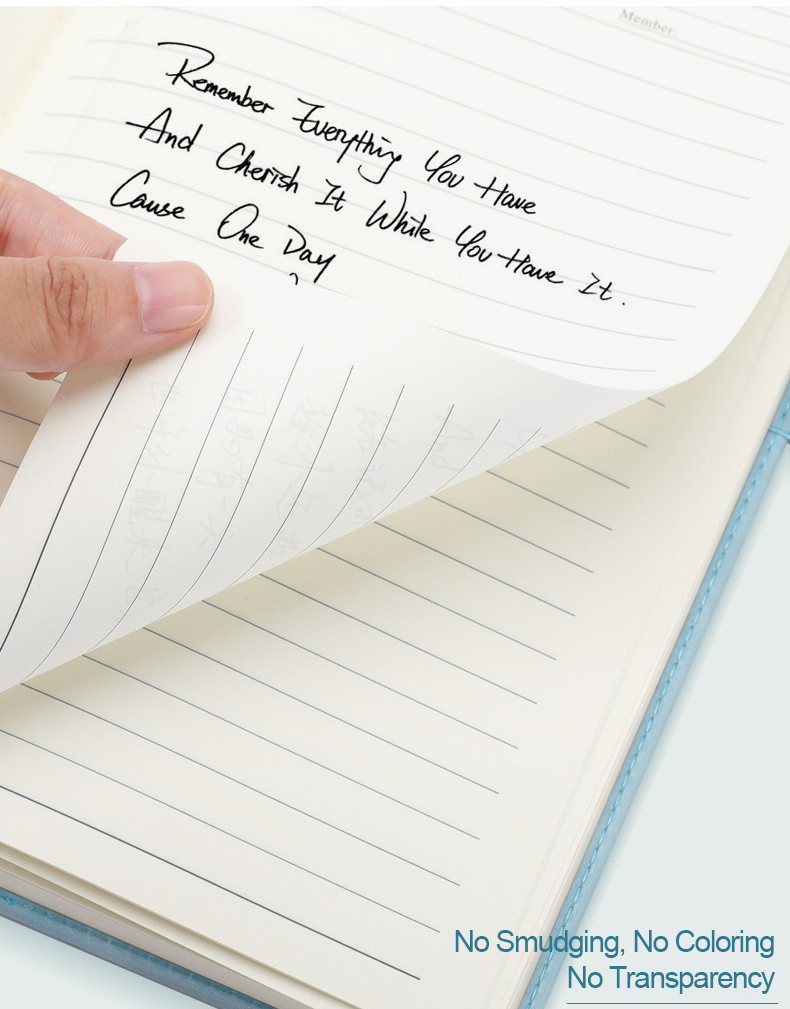 Member:
Remember Everything You Have
And Cherish It While You Have It.
Cause One Day
No Smudging, No Coloring
No Transparency